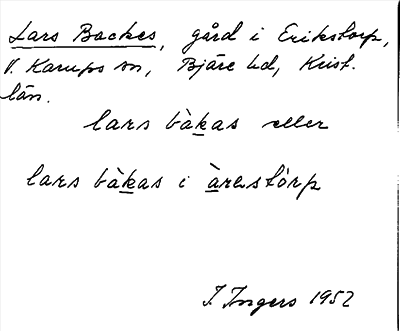 Lars Backes, gård i Erikstorp,
V. Karups sn, Bjäre hd, Krist.
län.
lars bàkas eller
lars bàkas i àrestòrp
I. Ingers 1952